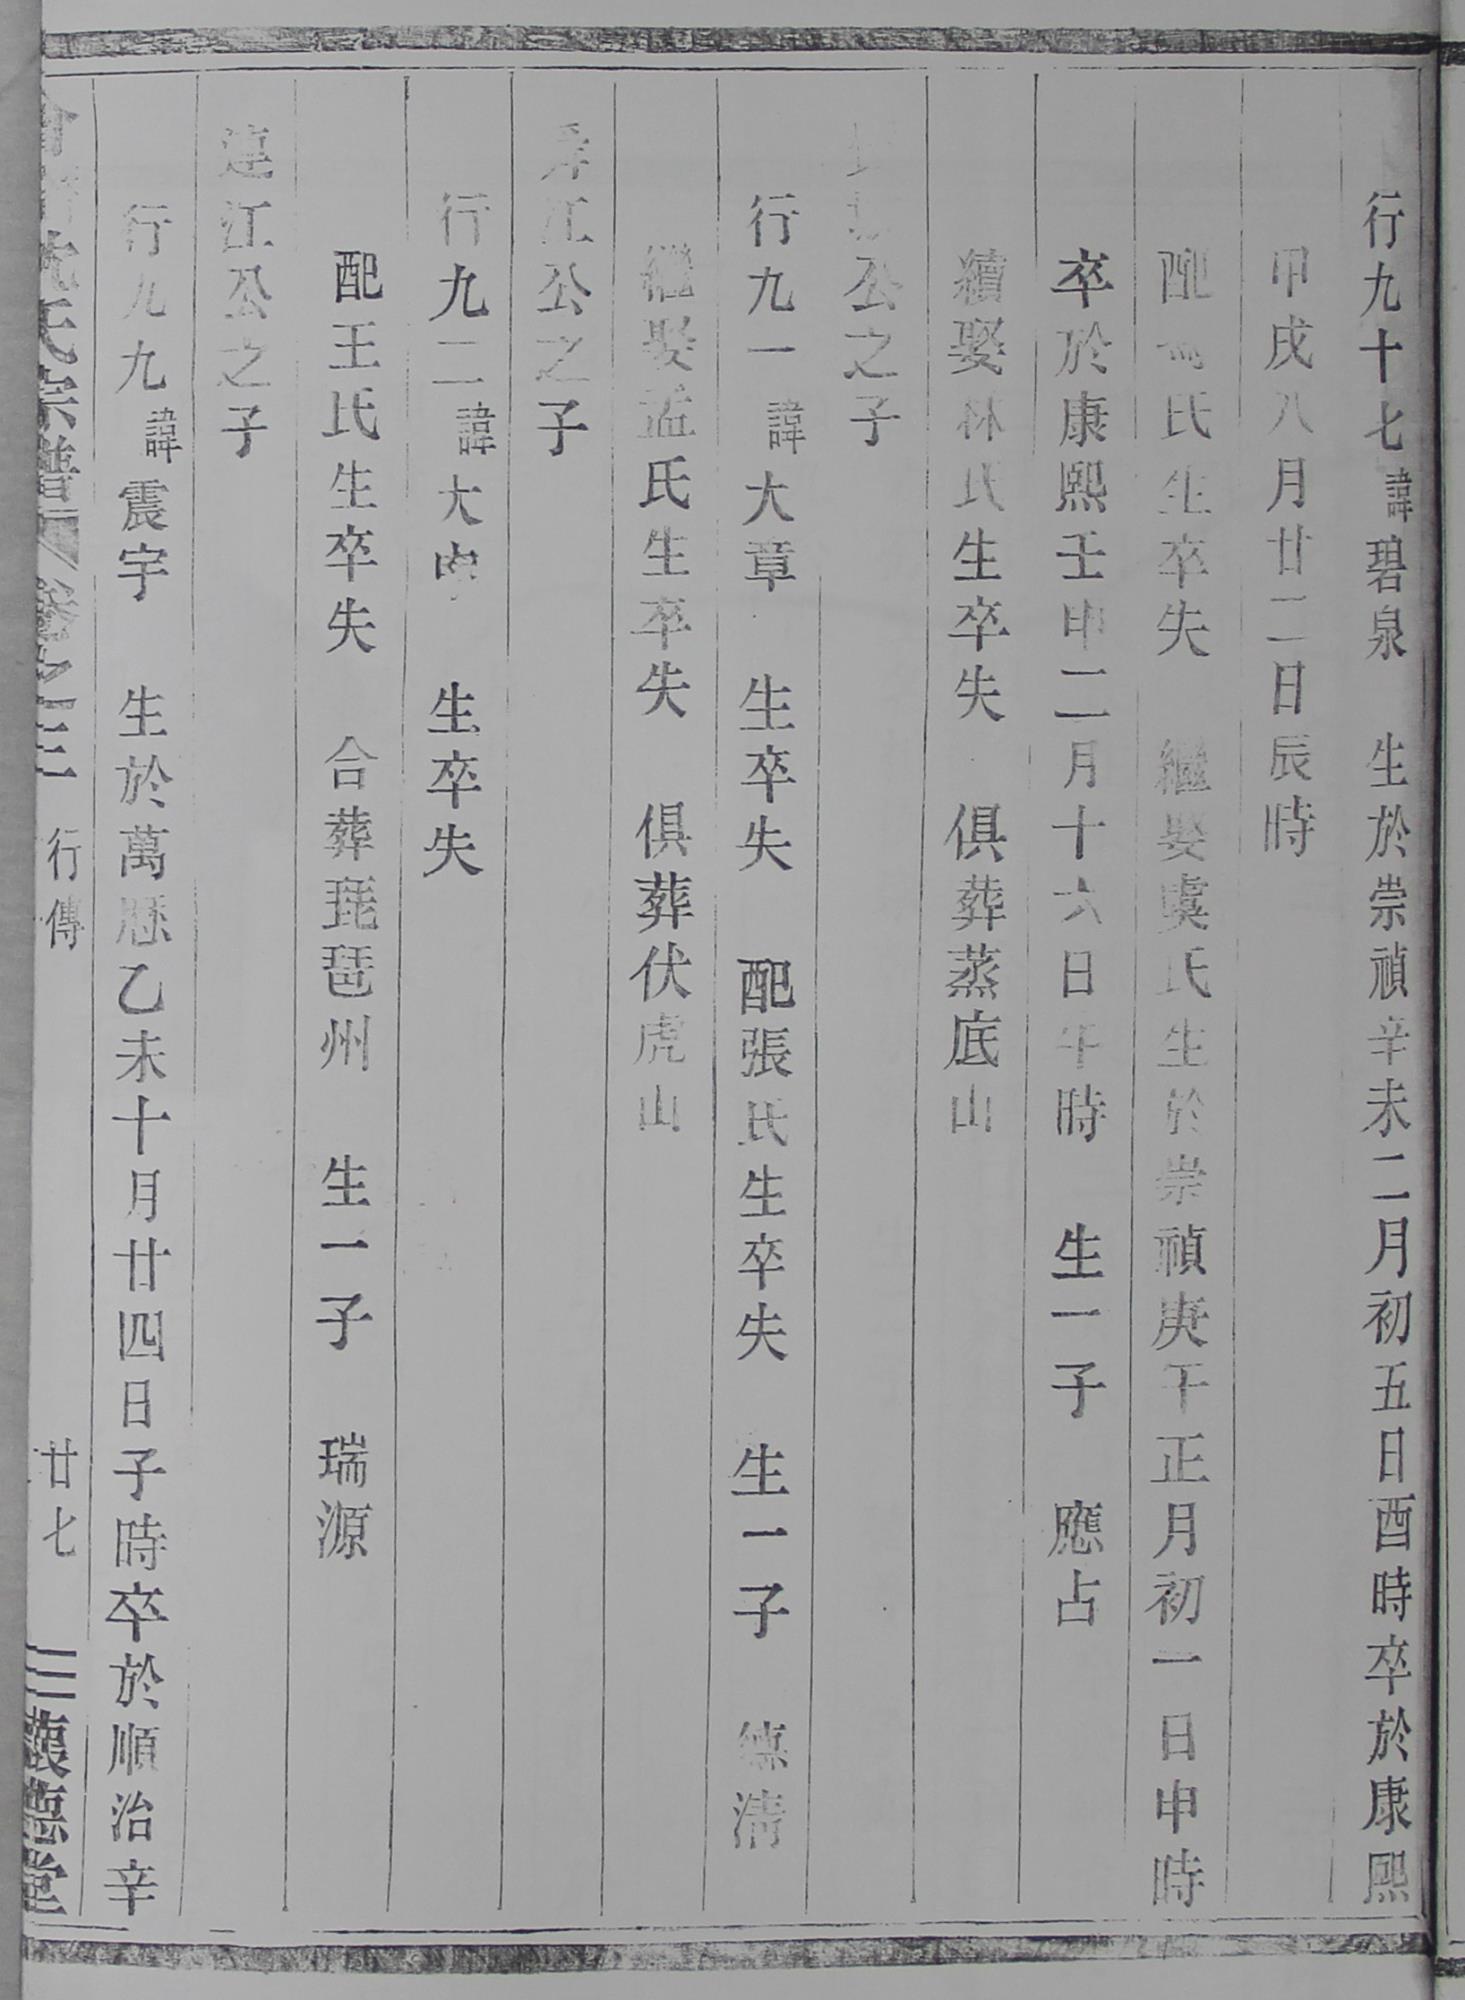 行九十七諱碧泉　生於崇禎辛未二月初五日酉時卒於康熙
甲戌八月廿二日辰時
配　氏生卒失　繼娶虞氏生於崇禎庚午正月初一日申時
卒於康熙壬申二月十六日午時　生一子　應占
續娶林氏生卒失　俱葬蒸底山
公之子
行九一諱大章　生卒失　配張氏生卒失　生一子　德清
繼娶孟氏生卒失　俱葬伏虎山
江公之子
行九二諱大　生卒失
配王氏生卒失　合葬琵琶州　生一子　瑞源
連江公之子
行九九諱震宇　生於萬歷乙未十月廿四日子時卒於順治辛
沈氏宗譜　卷之三　行傳　廿七　德堂